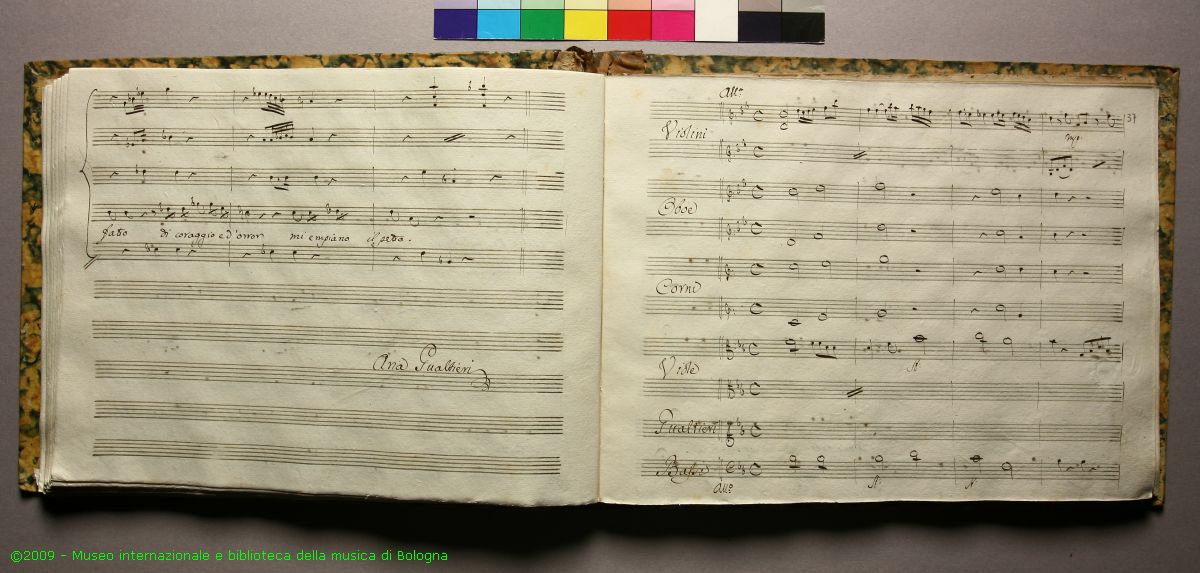 fato di coraggio e d'orror mi empiano il peto.
Aria Gualtieri
All.º
37
Violini
Oboe
Corni
Viole
Gualtieri
Bassi
All.º
©2009 - Museo internazionale e biblioteca della musica di Bologna